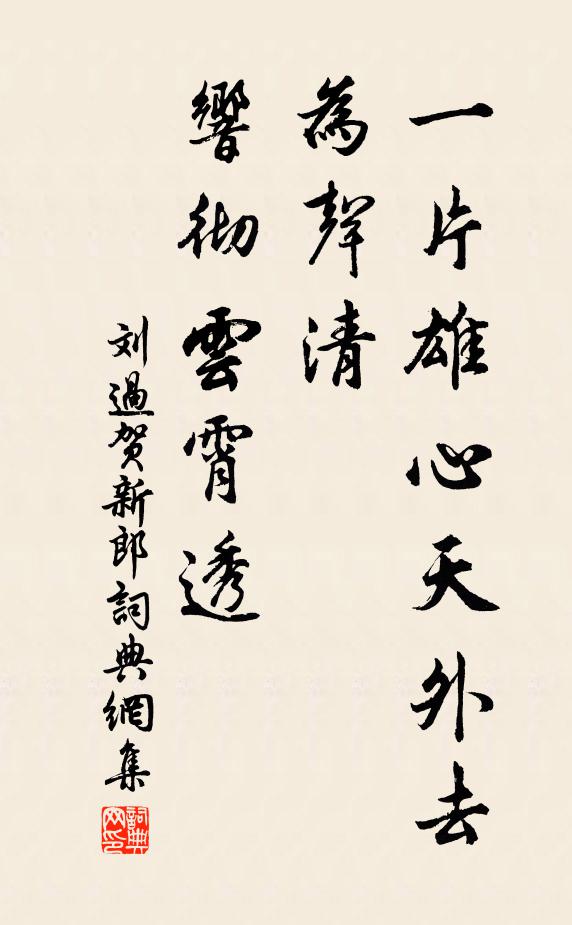 一片雄心天外去
為聲清
響彻雲霄透
刘過贺新郎詞典網集
詞典网印